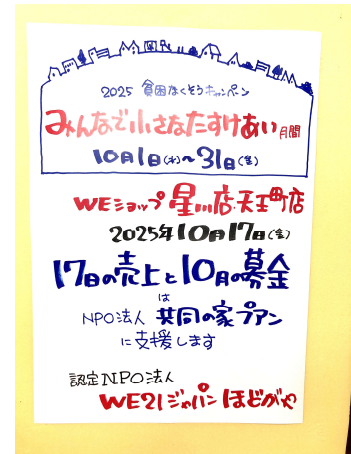 2025 貧困なくそうキャンペーン
みんなで小さなたすけあい月間
10月1日(水)〜31日(金)
WEショップ 星川店・天王町店
2025年10月17日(金)
17日の売上と10月の募金
は
NPO法人 共同の家プアン
に支援します
認定NPO法人
WE21ジャパン ほどがや